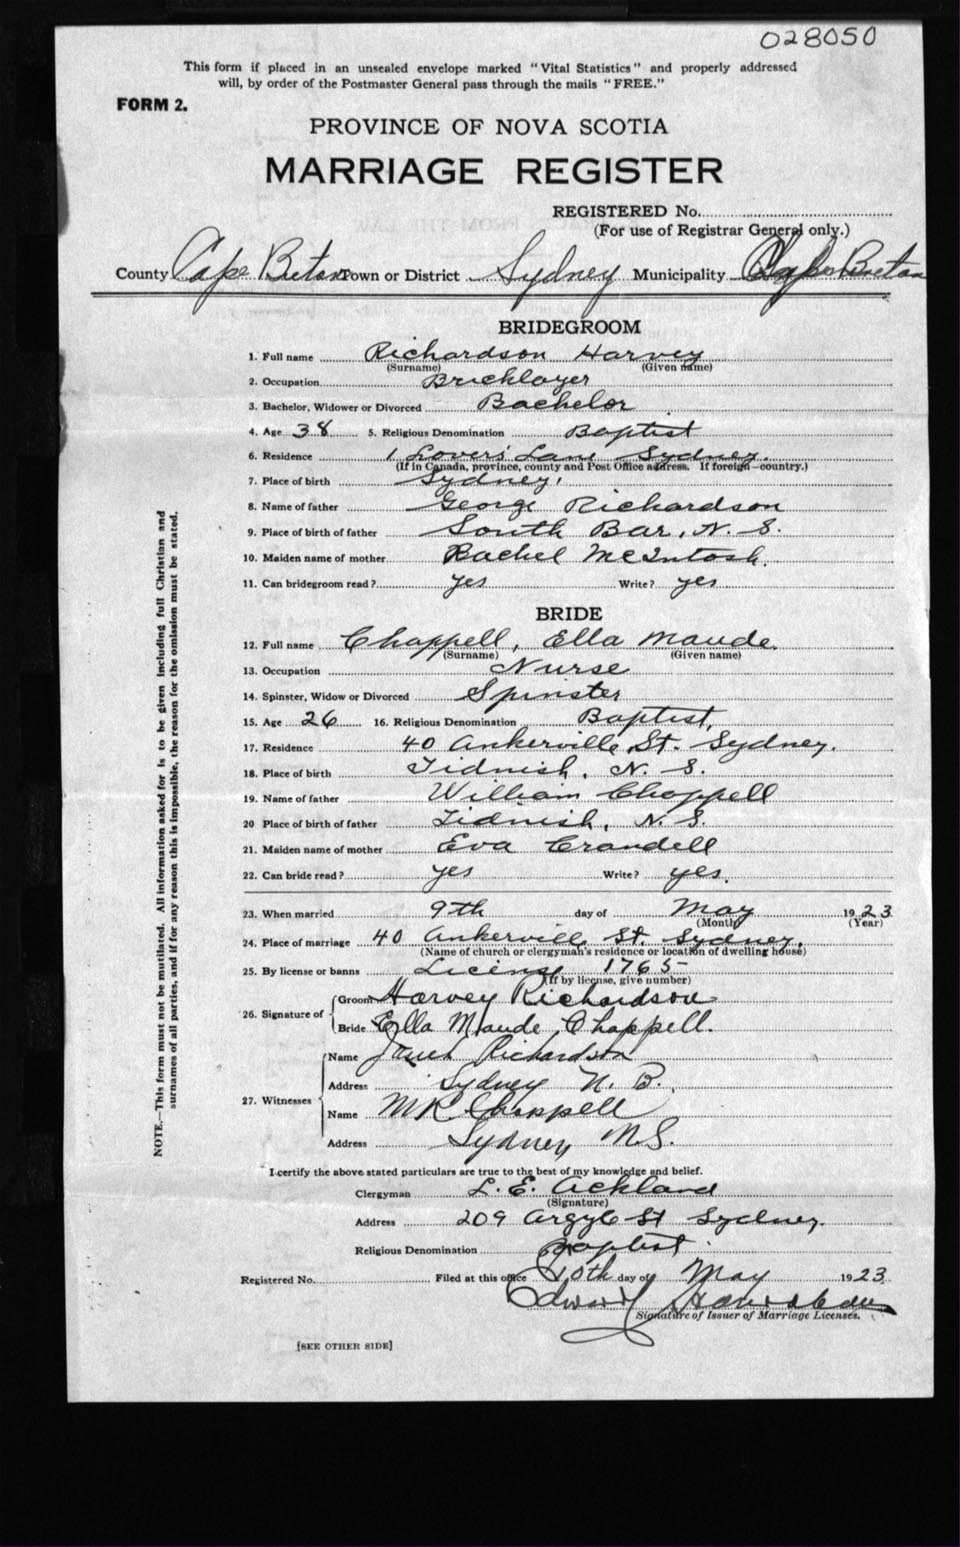 028050
This form if placed in an unsealed envelope marked "Vital Statistics" and properly addressed
will, by order of the Postmaster General pass through the mails "FREE."
FORM 2.
PROVINCE OF NOVA SCOTIA
MARRIAGE REGISTER
REGISTERED No.
(For use of Registrar General only.)
County Cape Breton Town or District Sydney Municipality Cape Breton
BRIDEGROOM
1. Full name Richardson Harvey
(Surname) (Given name)
2. Occupation Bricklayer
3. Bachelor, Widower or Divorced Bachelor
4. Age 38 5. Religious Denomination Baptist
6. Residence 1 Lovers Lane Sydney.
(If in Canada, province, county and Post Office address. If foreign—country.)
7. Place of birth Sydney
8. Name of father George Richardson
9. Place of birth of father South Bar, N. S.
10. Maiden name of mother Rachel McIntosh.
11. Can bridegroom read? yes Write? yes
BRIDE
12. Full name Chappell, Ella Maude.
(Surname) (Given name)
13. Occupation Nurse
14. Spinster, Widow or Divorced Spinster
15. Age 26 16. Religious Denomination Baptist,
17. Residence 40 Ankerville St. Sydney.
18. Place of birth Tidnish, N. S.
19. Name of father William Chappell
20 Place of birth of father Tidnish, N. S.
21. Maiden name of mother Eva Crandell
22. Can bride read? yes Write? yes.
23. When married 9th day of May 1923
(Month) (Year)
24. Place of marriage 40 Ankervill St. Sydney.
(Name of church or clergyman's residence or location of dwelling house)
25. By license or banns License 1765
(If by license, give number)
26. Signature of Groom Harvey Richardson
Bride Ella Maude Chappell.
27. Witnesses Name Richardson
Address Sydney N. B.
Name M R Chappell
Address Sydney N.S.
I certify the above stated particulars are true to the best of my knowledge and belief.
Clergyman L. E. Ackland
(Signature)
Address 209 Argyle St Sydney.
Religious Denomination Baptist
Registered No. Filed at this office 10th day of May 1923
Edward
Signature of Issuer of Marriage Licenses.
[SEE OTHER SIDE]
NOTE.—This form must not be mutilated. All information asked for is to be given including full Christian and
surnames of all parties, and if for any reason this is impossible, the reason for the omission must be stated.